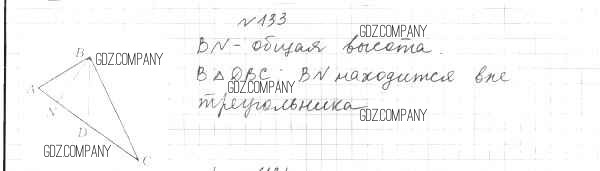 №133
GDZ.COMPANY
BN - общая высота.
B
GDZ.COMPANY
В △DBC: BN находится вне
GDZ.COMPANY
A
треугольника
N
GDZ.COMPANY
D
GDZ.COMPANY
C